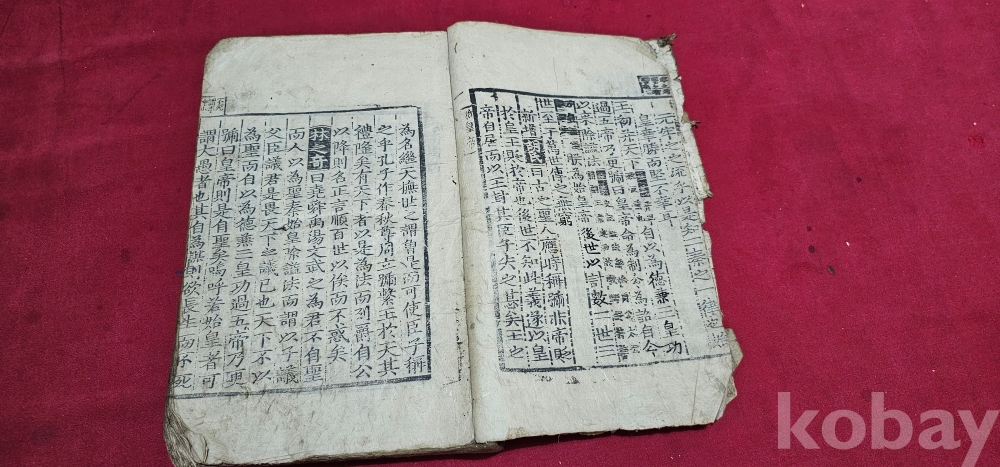 皇幸勝而堅不幸耳
王初幷天下自以為德兼三皇功
過五帝乃更號曰皇帝命為制令為詔自今
以來除諡法
朕為始皇帝後世以計數二世三
世至于萬世傳之無窮
新增胡氏曰古之聖人應時稱號非帝貶
於皇王貶於帝也後世不知此義遂以皇
帝自居而以王封其臣子失之甚矣王之
為名繼天撫世之謂曾是而可使臣子稱
之乎孔子作春秋尊周立號繫王於天其
禮隆矣有天下者以是為法而列爵自公
以降則名正言順百世以俟而不惑矣
林之奇曰堯舜禹湯文武之為君不自聖
而人以為聖秦始皇除諡法而謂以子議
父臣議君是畏天下之議己也天下不以
為聖而自以為德兼三皇功過五帝乃更
號曰皇帝則是自聖矣嗚呼若始皇者可
謂大愚者也其自為謀則欲長生而不死
kobay